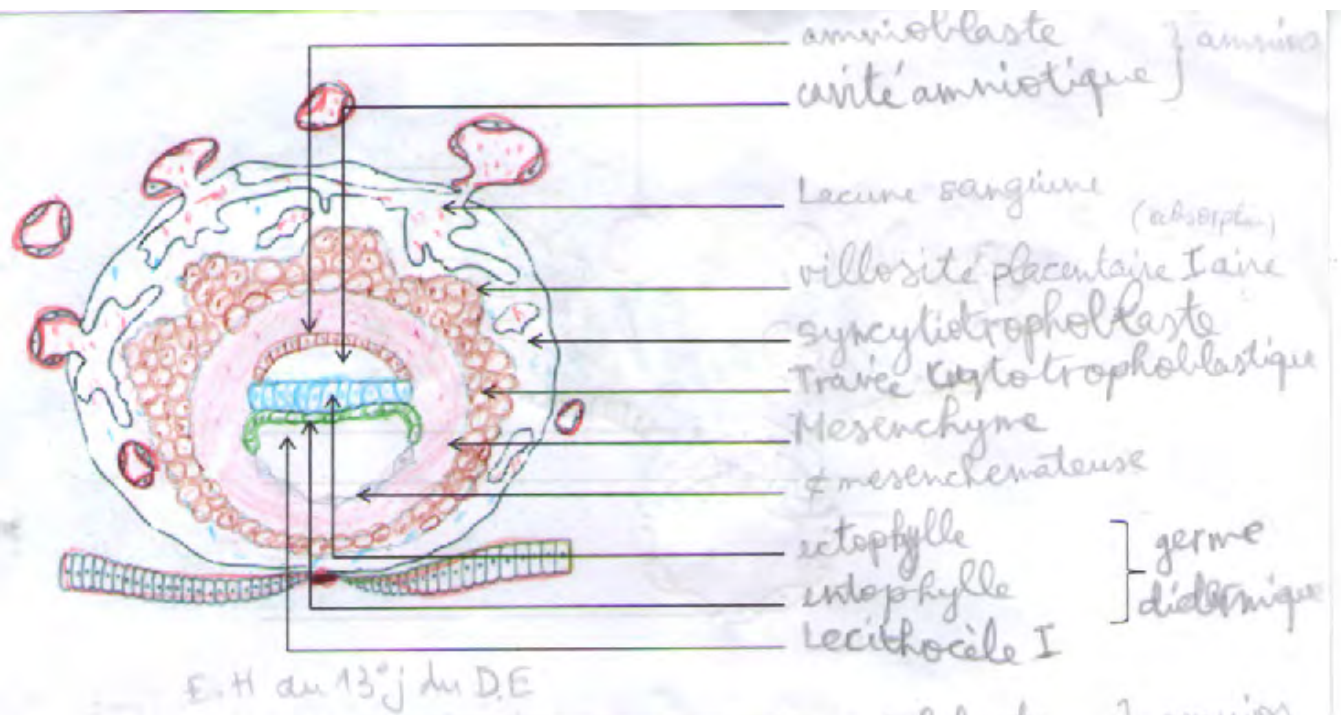 amnioblaste } amnios
cavité amniotique
Lacune sanguine
(absorption)
villosité placentaire I aire
syncytiotrophoblaste
Travée cytotrophoblastique
Mesenchyme
¢ mesenchemateuse
ectophylle
entophylle
Lecithocèle I
germe
didermique
E.H au 13°j du D.E
amnios